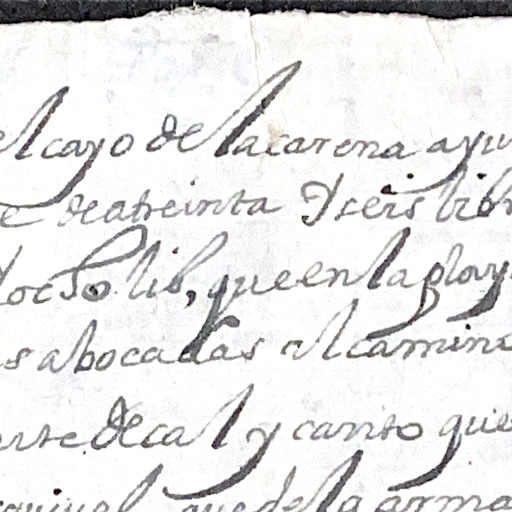 el cayo de la carena ayu
e de atreinta Yseis libr
ocho lib, que en la play
s abocadas al camino
nte de cal y canto que
que de la arma